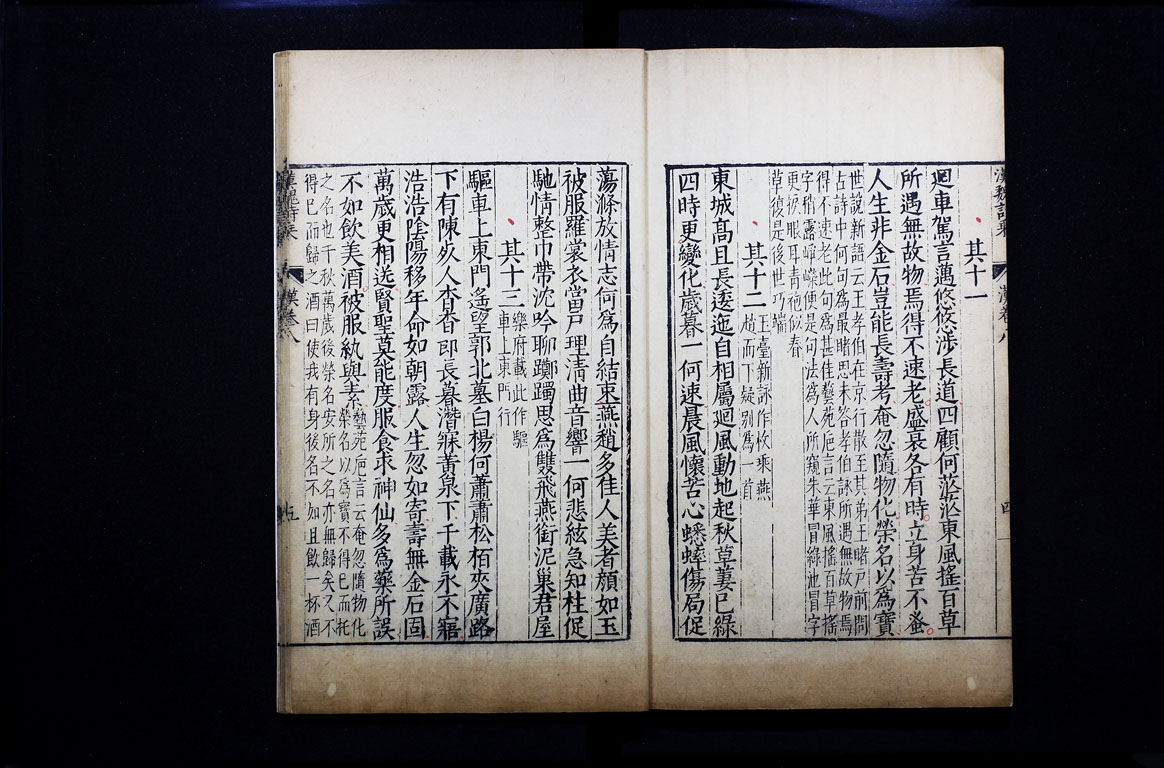 漢魏詩乘 漢卷八 四
其十一
廻車駕言邁悠悠涉長道四顧何茫茫東風搖百草
所遇無故物焉得不速老盛衰各有時立身苦不蚤
人生非金石豈能長壽考奄忽隨物化榮名以為寶
世說新語云王孝伯在京行散至其弟王睹戶前問
古詩中何句為最睹思未答孝伯詠所遇無故物焉
得不速老此句為甚佳藝苑巵言云東風搖百草搖
字稍露崢嶸便是句法為人所窺朱華冒綠池冒字
更捩眼耳青袍似春
草復是後世巧端
其十二
玉臺新詠作枚乘燕
趙而下疑別為一首
東城髙且長逶迤自相屬廻風動地起秋草萋已綠
四時更變化歲暮一何速晨風懷苦心蟋蟀傷局促
蕩滌放情志何為自結束燕趙多佳人美者顏如玉
被服羅裳衣當戶理清曲音響一何悲絃急知柱促
馳情整巾帶沈吟聊躑躅思為雙飛燕銜泥巢君屋
其十三
樂府載此作驅
車上東門行
驅車上東門遙望郭北墓白楊何蕭蕭松栢夾廣路
下有陳死人杳杳即長暮潛寐黃泉下千載永不寤
浩浩陰陽移年命如朝露人生忽如寄壽無金石固
萬歲更相送賢聖莫能度服食求神仙多為藥所誤
不如飲美酒被服紈與素
藝苑巵言云奄忽隨物化
榮名以為寶不得已而托
之名也千秋萬歲後榮名安所之名亦無歸矣又不
得已而歸之酒曰使我有身後名不如且飲一杯酒
漢魏詩乘 漢卷八 五